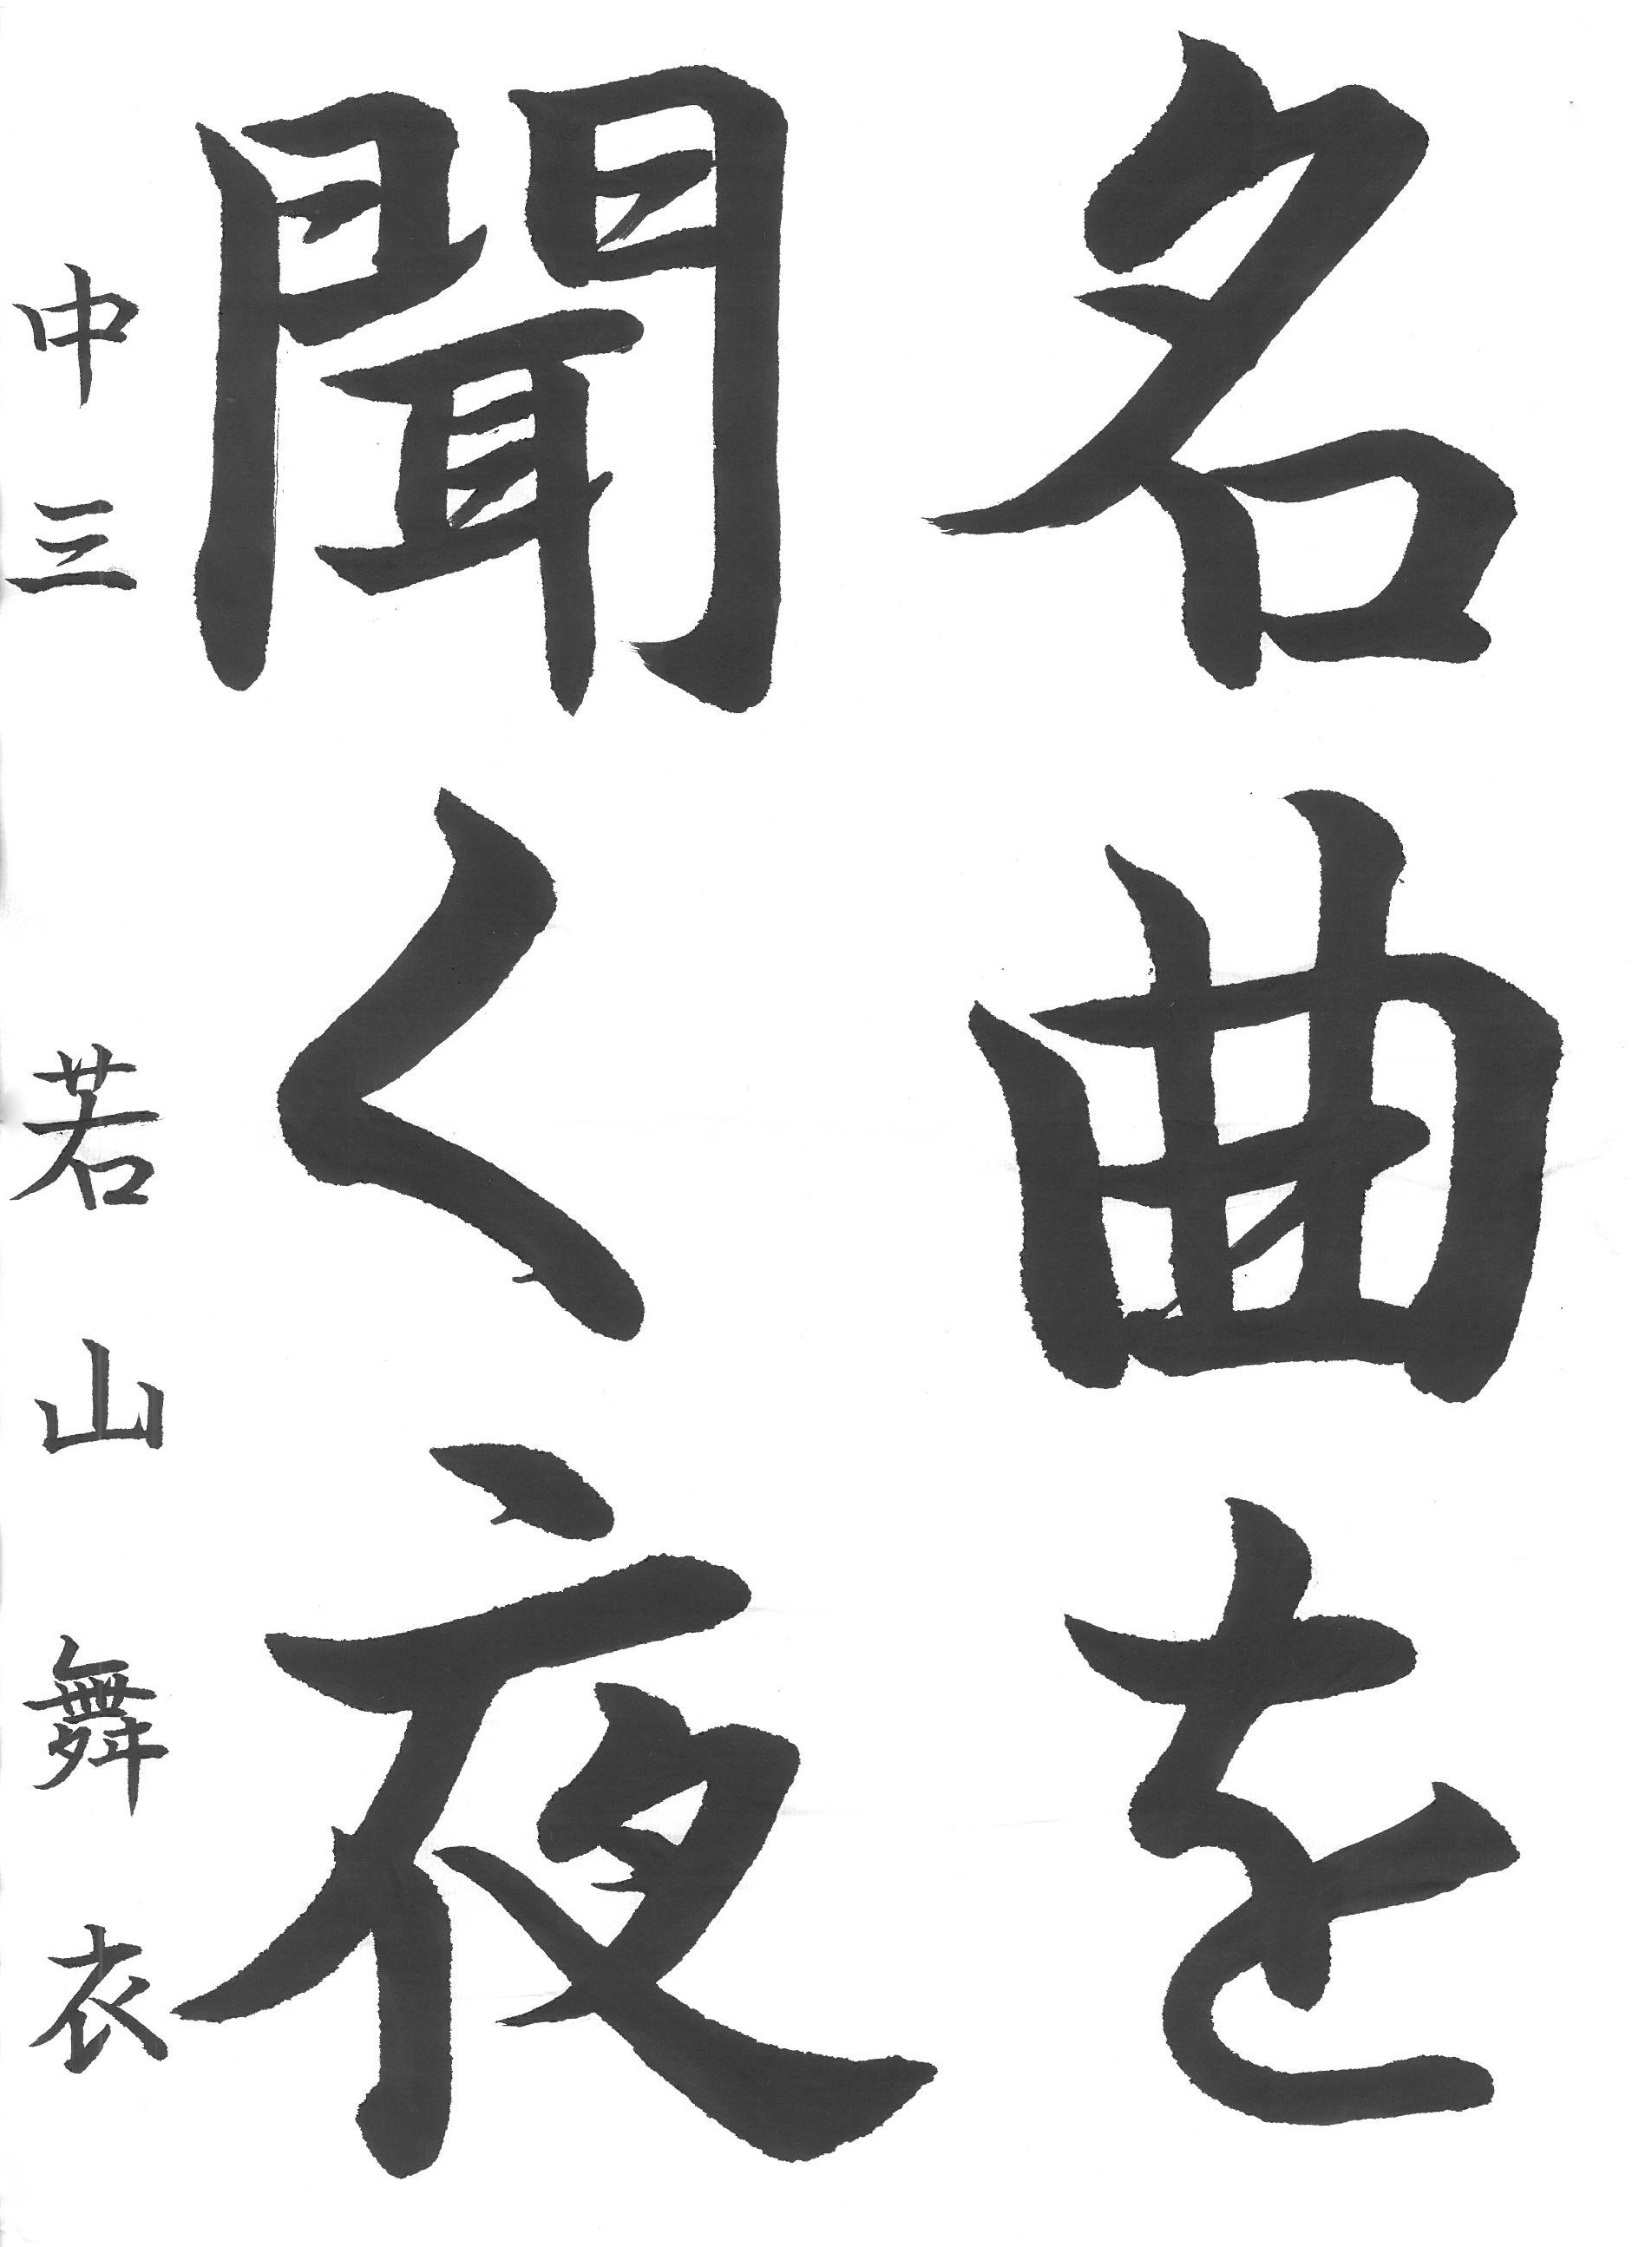 名曲を
聞く夜
中三 若山舞衣